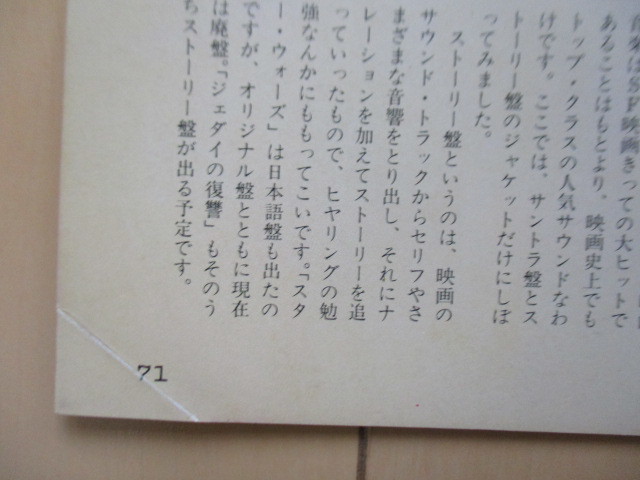 音楽はSF映画きっての大ヒットで
あることはもとより、映画史上でも
トップ・クラスの人気サウンドなわ
けです。ここでは、サントラ盤とス
トーリー盤のジャケットだけにしぼ
ってみました。
ストーリー盤というのは、映画の
サウンド・トラックからセリフやさ
まざまな音響をとり出し、それにナ
レーションを加えてストーリーを追
っていったもので、ヒヤリングの勉
強なんかにももってこいです。「スタ
ー・ウォーズ」は日本語盤も出たの
ですが、オリジナル盤とともに現在
は廃盤。「ジェダイの復讐」もそのう
ちストーリー盤が出る予定です。
71